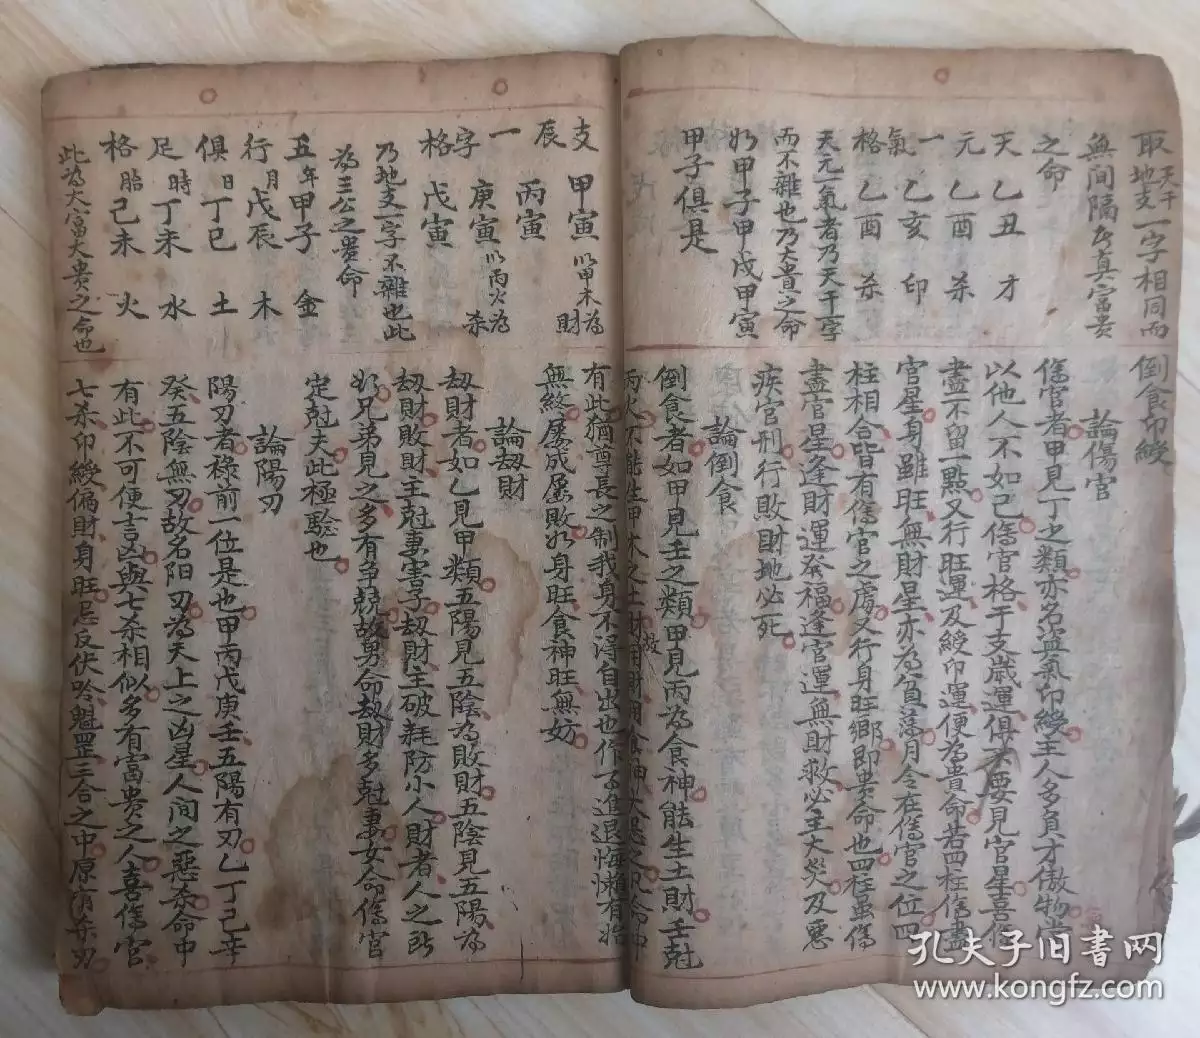 取天干地支一字相同而
無間隔乃真富貴
之命
天 乙丑 才
元 乙酉 杀
一 乙亥 印
氣
格 乙酉 杀
天元一氣者乃天干一字
而不雜也乃大貴之命
如甲子甲戌甲寅
甲子俱是
倒食印綬
論傷官
傷官者甲見丁之類亦名盜氣印綬主人多負才傲物
以他人不如己傷官格干支歲運俱不要見官星喜傷
盡不留一點又行旺運及綬印運便為貴命若四柱傷盡
官星身雖旺無財星亦為貧薄月令在傷官之位四
柱相合皆有傷官之處又行身旺鄉即貴命也四柱虽傷
盡官星逢財運發福逢官運無財救必主大災及惡
疾官刑行敗財地必死
論倒食
倒食者如甲見壬之類甲見丙為食神能生土財壬尅
丙火不能生甲木之土財故用財用食神大忌之命中
支 甲寅 以甲木為財
辰 丙寅
一 庚寅 以丙火為杀
字
格 戊寅
乃地支一字不雜也此
為三公之貴命
五 年甲子 金
行 月戊辰 木
俱 日丁巳 土
足 時丁未 水
格 胎己未 火
此為大富大貴之命也
有此猶尊長之制我身不得自出也作事進退悔懶有始
無終屡成屡敗如身旺食神旺無妨
論劫財
劫財者如乙見甲類五陽見五陰為敗財五陰見五陽為
劫財敗財主尅妻害子劫財主破耗防小人財者人之所
欲兄弟見之多有争競故男命劫財多尅妻女命傷官
定尅夫此極驗也
論陽刃
陽刃者祿前一位是也甲丙戊庚壬五陽有刃乙丁己辛
癸五陰無刃故名阳刃為天上之凶星人間之惡杀命中
有此不可便言凶與七杀相似多有富贵之人喜傷官
七杀印綬偏財身旺忌反伏吟魁罡三合之中原有杀刃
孔夫子旧书网
www.kongfz.com